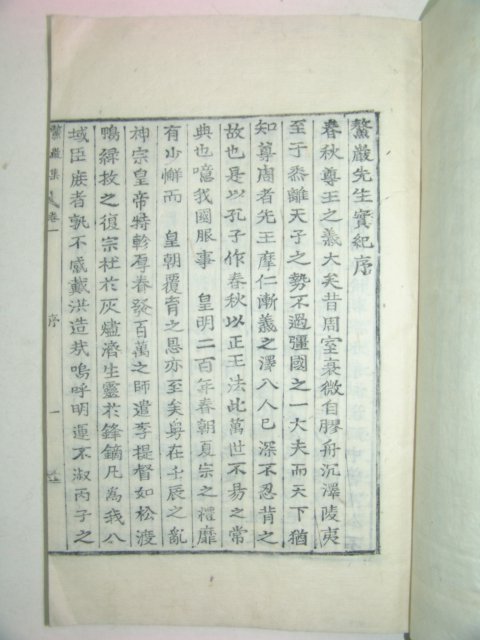 鰲巖先生實紀序
春秋尊王之義大矣昔周室衰微自膠舟沉澤陵夷
至于泰離天子之勢不過彊國之一大夫而天下猶
知尊周者先王摩仁漸義之澤入人已深不忍背之
故也是以孔子作春秋以正王法此萬世不易之常
典也噫我國服事 皇明二百年春朝夏宗之禮靡
有少懈而 皇朝覆育之恩亦至矣粤在壬辰之亂
神宗皇帝特軫厚眷發百萬之師遣李提督如松渡
鴨綠救之復宗社於灰燼濟生靈於鋒鏑凡爲我八
域臣庶者孰不感戴洪造哉嗚呼明運不淑丙子之
鰲巖集 卷一 序 一